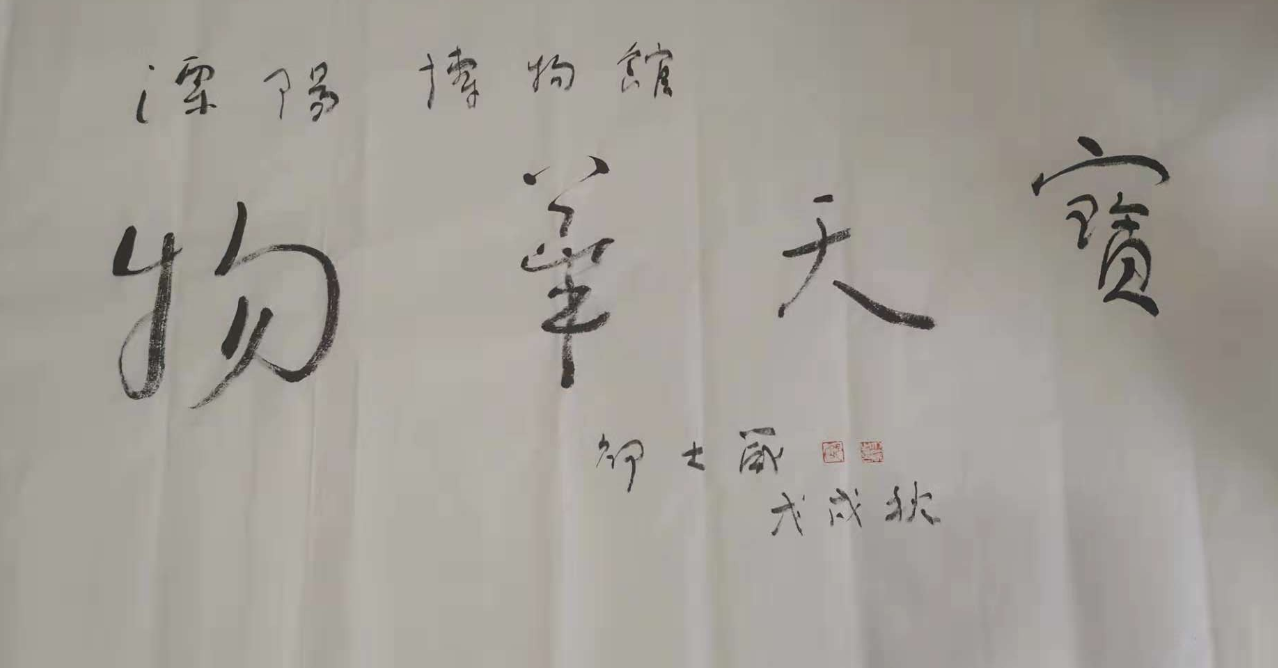 溧陽博物館
物華天寶
士
戊戌秋